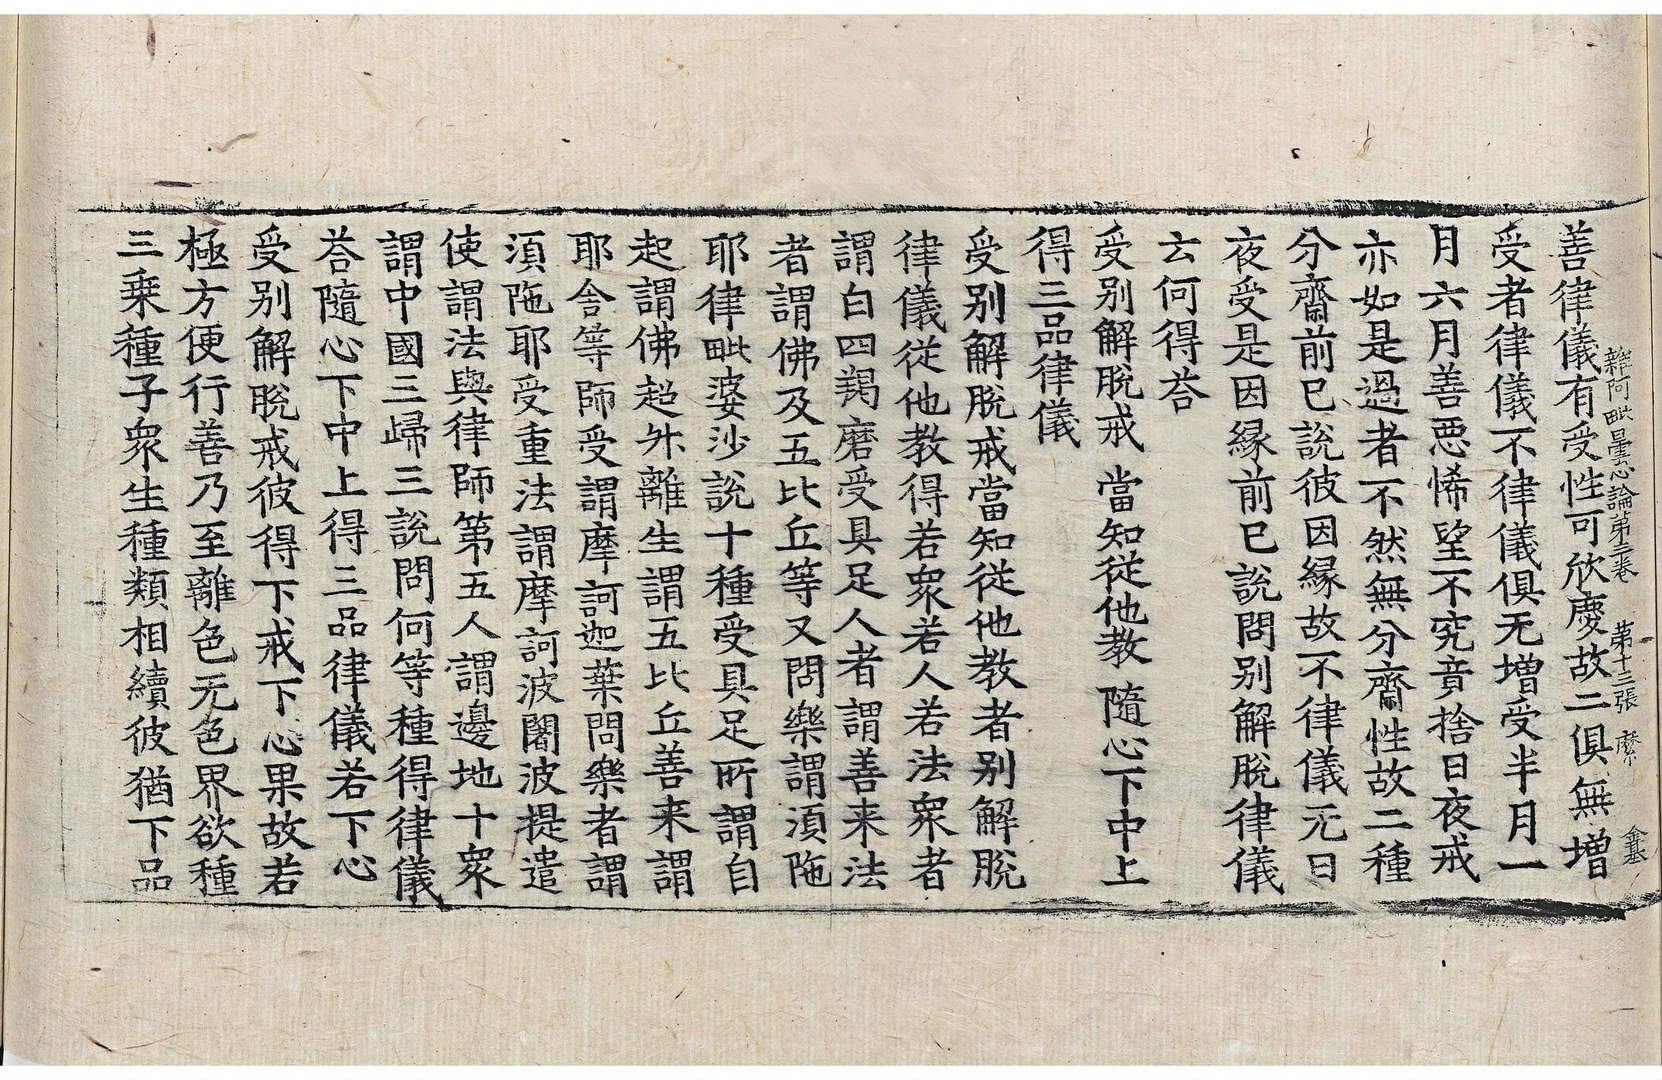 雜阿毗曇心論第三卷　第十三張　縻
善律儀有受性可欣慶故二俱無增
受者律儀不律儀俱无增受半月一
月六月善惡悕望不究竟捨日夜戒
亦如是過者不然無分齋性故二種
分齋前已說彼因緣故不律儀无日
夜受是因緣前已說問別解脫律儀
云何得荅
受別解脫戒 當知從他教 隨心下中上
得三品律儀
受別解脫戒當知從他教者別解脫
律儀從他教得若衆若人若法衆者
謂白四羯磨受具足人者謂善来法
者謂佛及五比丘等又問樂謂須陁
耶律毗婆沙說十種受具足所謂自
起謂佛超昇離生謂五比丘善来謂
耶舍等師受謂摩訶迦葉問樂者謂
須陁耶受重法謂摩訶波闍波提遣
使謂法與律師第五人謂邊地十衆
謂中國三歸三說問何等種得律儀
荅隨心下中上得三品律儀若下心
受別解脫戒彼得下戒下心果故若
極方便行善乃至離色无色界欲種
三乗種子衆生種類相續彼猶下品